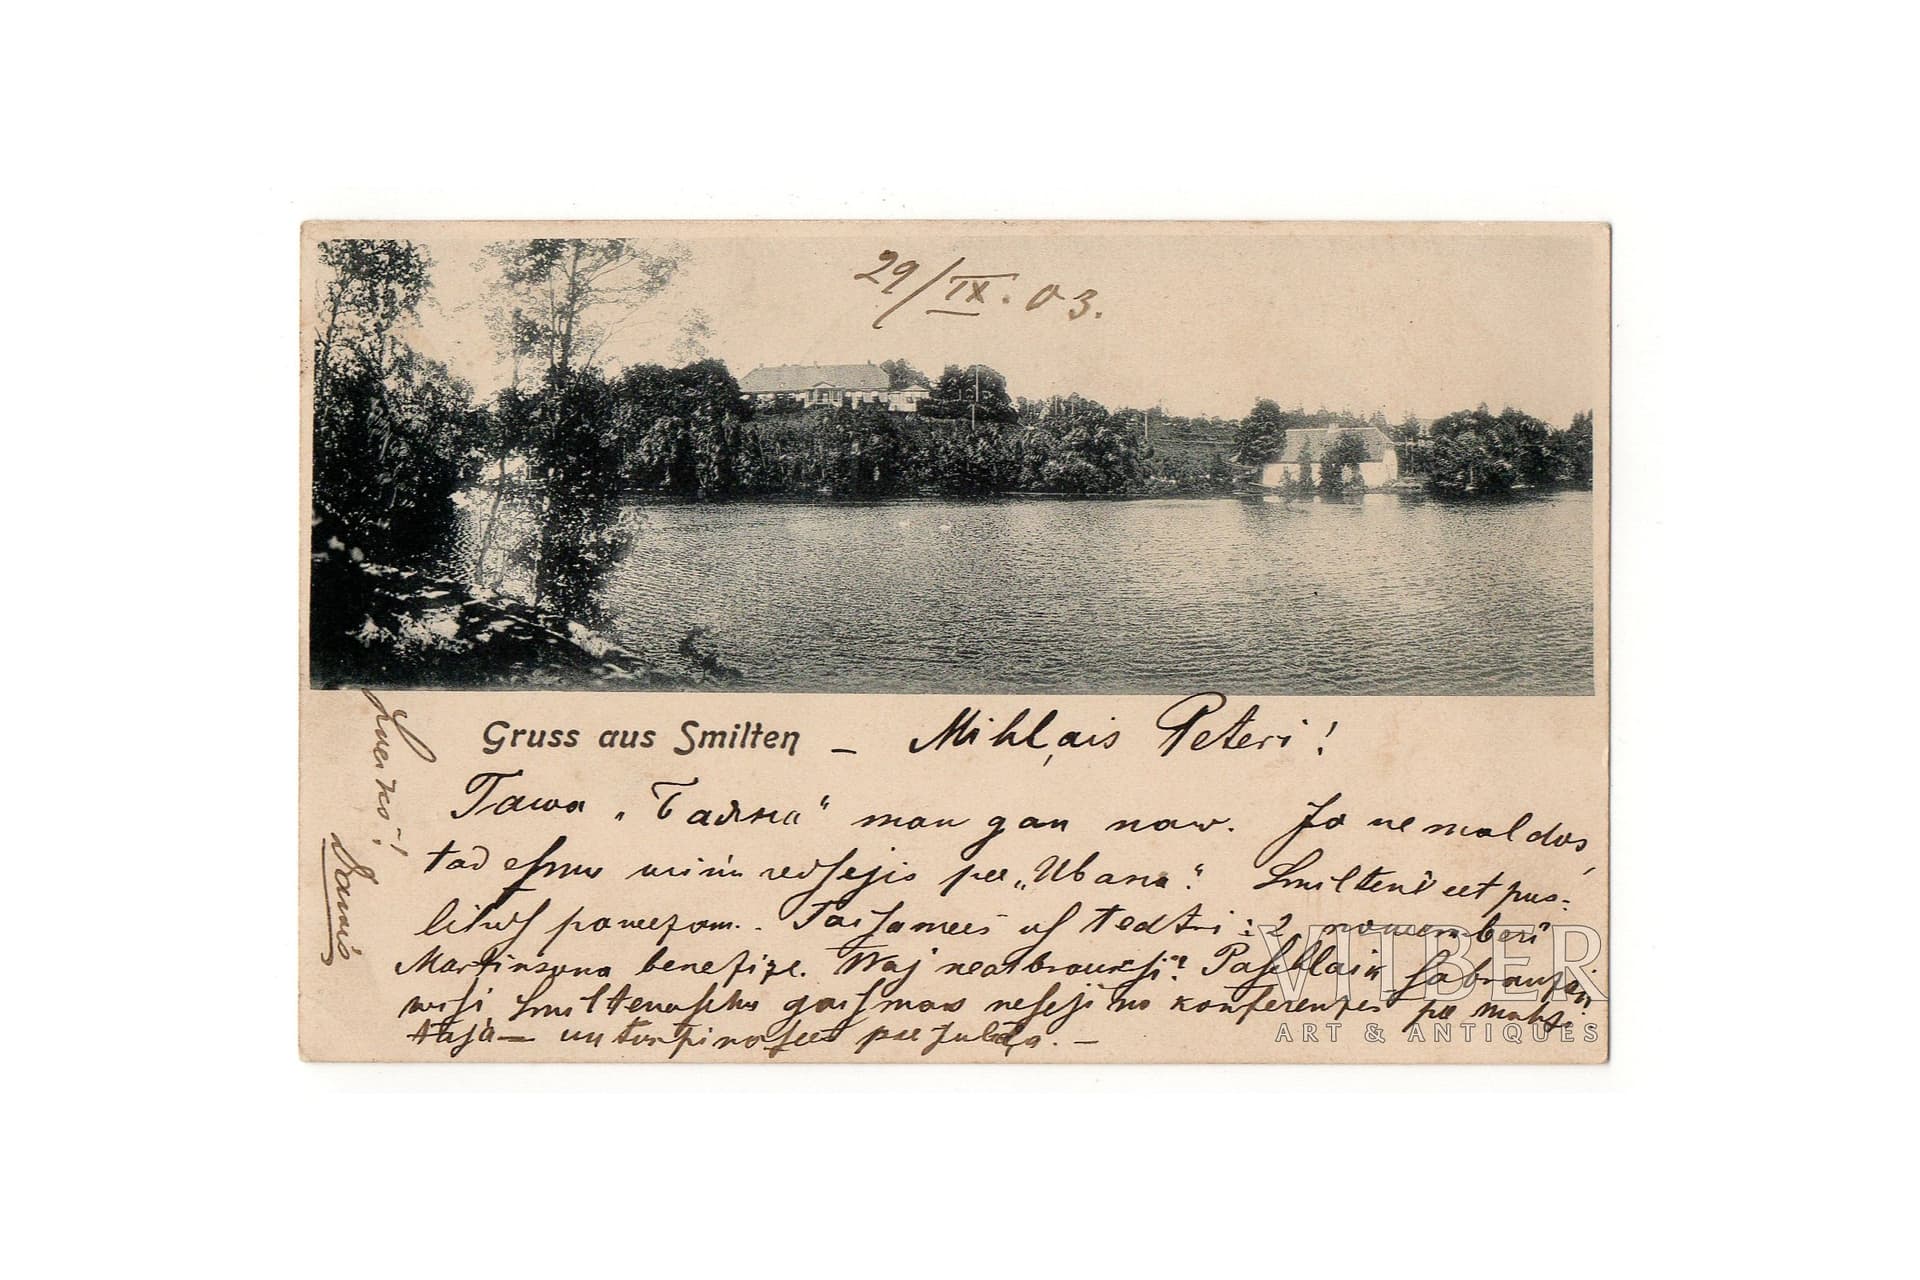 29/IX. 03.
Gruss aus Smilten – Mihļais Peteri!
Tawa „Бадна“ man gan naw. Jo ne maldos,
tad esmu wiņu redsejis pee „Ubana“. Smiltenē eet pus-
litwf pamezam. Taisamees uf teatri: 2 nowemberi
Martinsona benefize. Waj neatbrauksi? Paschlaik sabraukuschi
wisi Smiltenaschu gaismas neseji no konferenzes pee mahzi
taja — un turpinasees pee Jukuma. –
Sweiks!
Dannis
VITBER
ART & ANTIQUES